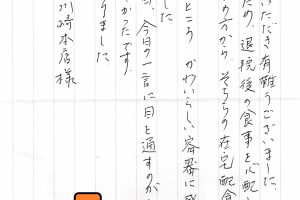 いただき有難うございました。
ため 退院後の食事を心配し
の方から、そちらの在宅配合
ところ かわいらしい容器に
した。
今日の一言に目を通すのが
かったです。
りました。
川崎本店 様